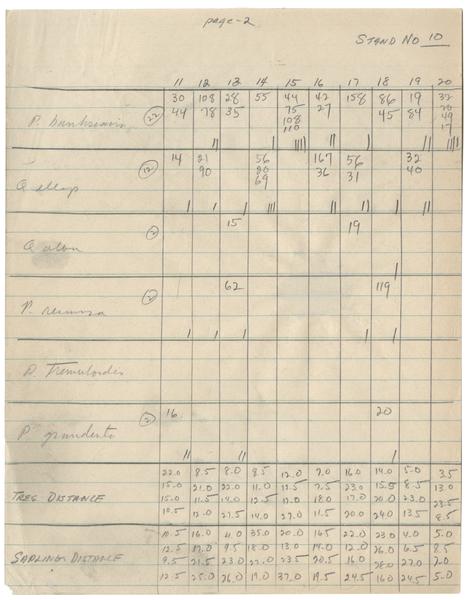 page-2
STAND NO 10
11 12 13 14 15 16 17 18 19 20
30 108 28 55 44 42 158 86 19 32
P. banksiana (22) 44 78 35 75 27 45 84
108 49
110 17
14 21 56 167 56 32
Q ellip (12) 90 20 36 31 40
69
15 19
Q alba (2)
62 119
P. resinosa (2)
P. Tremuloides
16 20
P. grandenta (2)
22.0 8.5 8.0 8.5 12.0 7.0 16.0 14.0 5.0 3.5
15.0 21.0 22.0 11.0 12.5 7.5 23.0 15.5 8.5 13.0
TREE DISTANCE 15.0 11.5 14.0 12.5 12.0 18.0 17.0 20.0 23.0 23.5
10.5 12.0 27.5 14.0 27.0 11.5 20.0 24.0 13.5 8.5
10.5 16.0 4.0 35.0 20.0 16.5 22.0 23.0 4.0 5.0
12.5 17.0 9.5 18.0 13.0 14.0 12.0 26.0 6.5 8.5
SAPLING DISTANCE 9.5 21.5 23.0 23.5 20.5 16.0 28.0 27.0 2.0
12.5 25.0 26.0 19.0 37.0 19.5 24.5 16.0 24.5 5.0